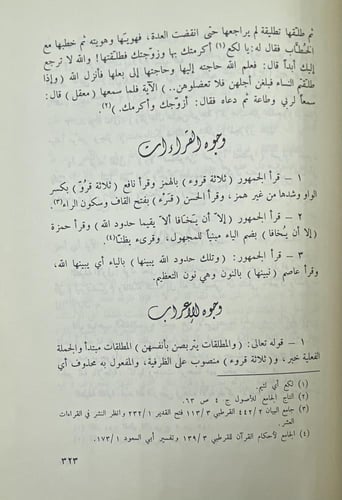 ثم طلّقها تطليقة لم يراجعها حتى انقضت العدة، فهويَتها وهويته ثم خطبها مع
الخُطّاب فقال له: يا لكع(١) أكرمتك بها وزوّجتك فطلّقتها! والله لا ترجع
إليك أبداً قال: فعلم الله حاجته إليها وحاجتها إلى بعلها فأنزل الله (وإذا
طلقتم النساء فبلغن أجلهن فلا تعضلوهن..) الآية فلما سمعها (معقل) قال:
سمعاً لربي وطاعة ثم دعاه فقال: أزوّجك وأكرمك.)(٢).
وجوه القراءات
١ – قرأ الجمهور (ثلاثة قروء) بالهمز وقرأ نافع (ثلاثة قروّ) بكسر
الواو وشدها من غير همز، وقرأ الحسن (قَرْء) بفتح القاف وسكون الراء(٣).
٢ – قرأ الجمهور (إلا أن يَخافا ألا يقيما حدود الله) وقرأ حمزة
(إلا أن يُخافا) بضم الياء مبنياً للمجهول، وقرىء يظنّا(٤).
٣ – قرأ الجمهور: (وتلك حدود الله يبينها) بالياء أي يبينها الله،
وقرأ عاصم (نبينها) بالنون وهي نون التعظيم.
وجوه الإعراب
١ – قوله تعالى: (والمطلقات يتربصن بأنفسهن) المطلقات مبتدأ والجملة
الفعلية خبر، و(ثلاثة قروء) منصوب على الظرفية، والمفعول به محذوف أي
(١) لكع أي لئيم.
(٢) التاج الجامع للأصول ج ٤ ص ٦٣.
(٣) جامع البيان ٤٤٢/٢ القرطبي ١١٣/٣ فتح القدير ٢٣٢/١ وانظر النشر في القراءات
العشر.
(٤) الجامع لأحكام القرآن للقرطبي ١٣٩/٣ وتفسير أبي السعود ١٧٣/١.
٣٢٣